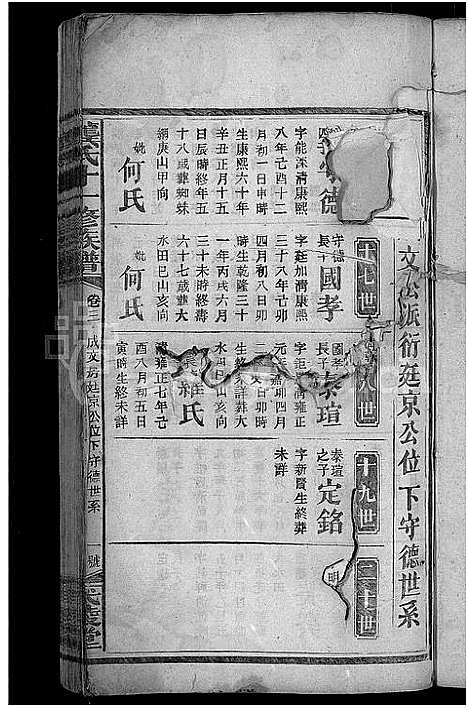 文公派衍廷京公位下守德世系
守德
字能深清康熙
八年己酉十二
月初一日申時
生康熙六十年
辛丑正月十五
日辰時終年五
十八歲葬蜘蛛
網庚山甲向
妣何氏
十七世
守德
長子
國孝
字廷加清康熙
三十八年己卯
四月初八日卯時
生終乾隆三十
一年丙戌六月
三十未時終壽
六十七歲葬大
水田巳山亥向
妣何氏
八世
國孝
長子
泰瑄
字
雍正
元年
卯四月
卯時
生終未詳葬大
水田巳山亥向
羅氏
清雍正七年己
酉八月初五日
寅時生終未詳
十九世
泰瑄
之子
定銘
字新賢生終葬
未詳
二十世
明
龔氏十修族譜
卷三
成文房廷京公位下守德世系
號